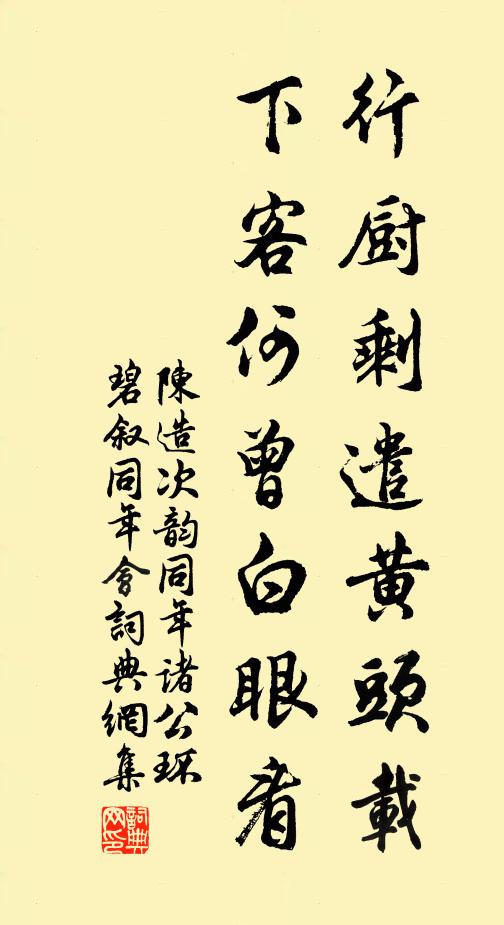 行厨剩遣黄頭載
下客何曾白眼看
陳造次韵同年諸公环
碧叙同年會詞典網集
詞典
网印